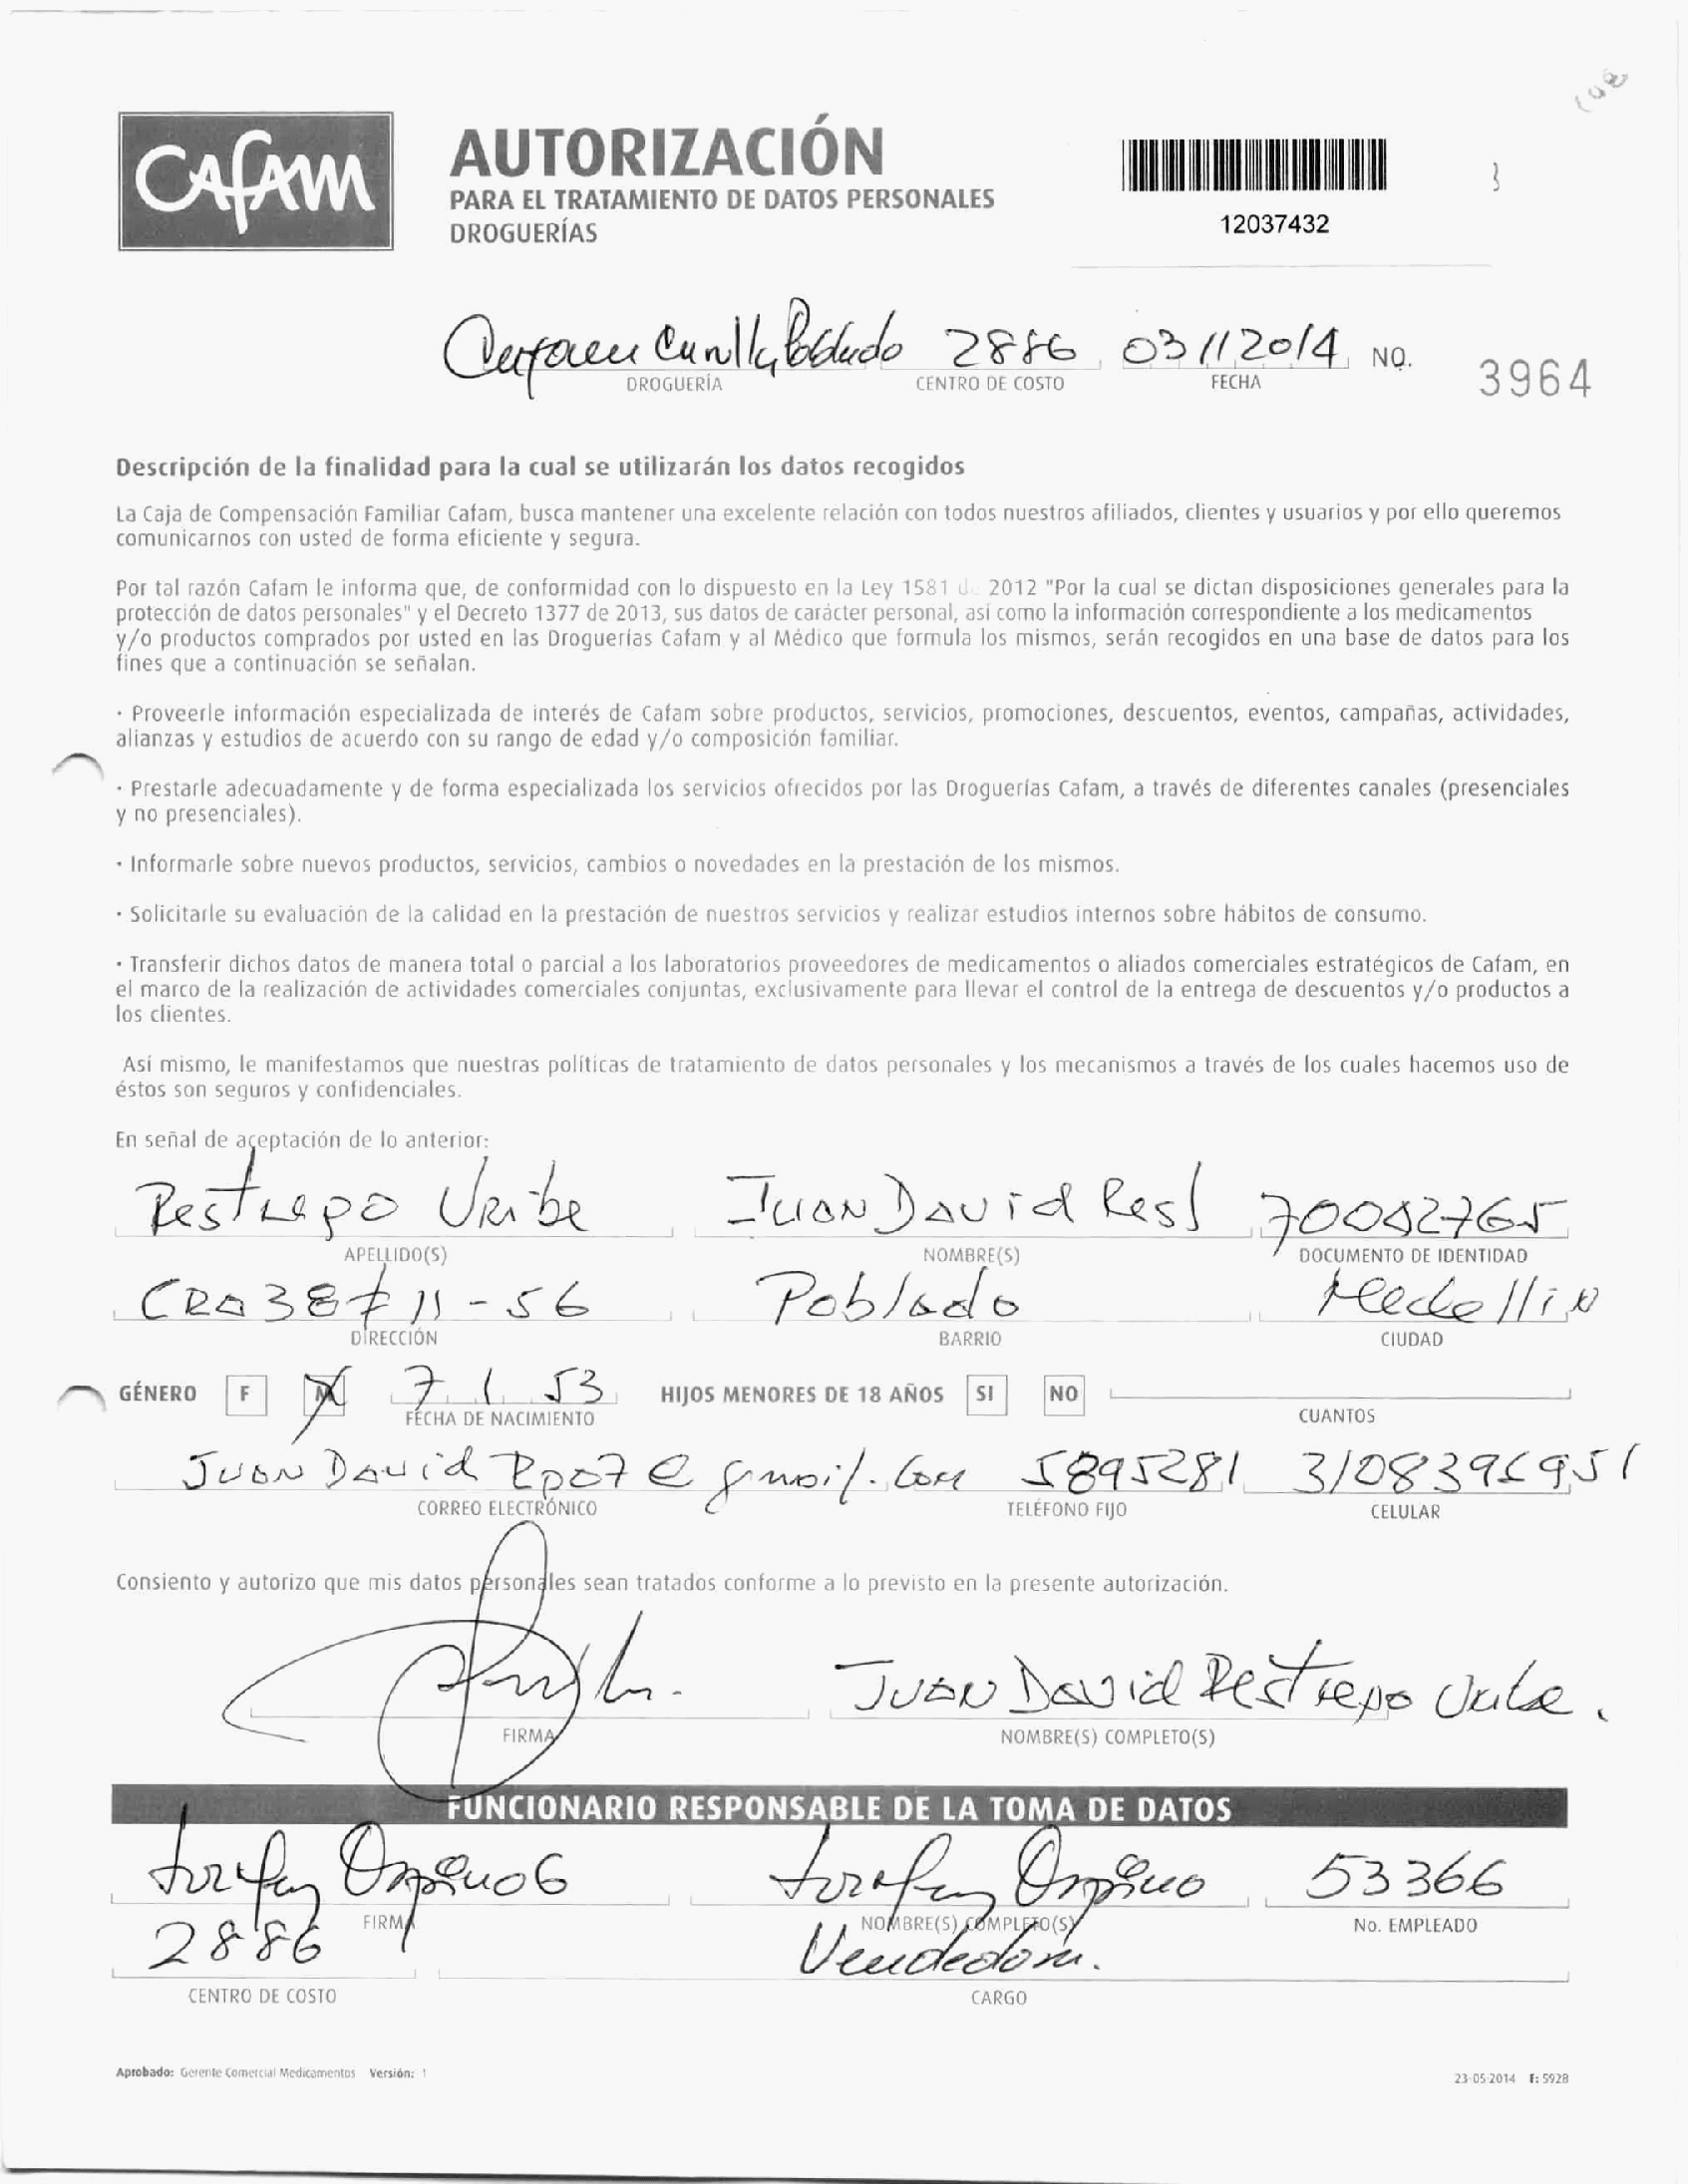 CAFAM
AUTORIZACIÓN
PARA EL TRATAMIENTO DE DATOS PERSONALES
DROGUERÍAS
12037432
Poblado 2886 03 11 2014 NO. 3964
DROGUERÍA CENTRO DE COSTO FECHA
Descripción de la finalidad para la cual se utilizarán los datos recogidos
La Caja de Compensación Familiar Cafam, busca mantener una excelente relación con todos nuestros afiliados, clientes y usuarios y por ello queremos
comunicarnos con usted de forma eficiente y segura.
Por tal razón Cafam le informa que, de conformidad con lo dispuesto en la Ley 1581 de 2012 "Por la cual se dictan disposiciones generales para la
protección de datos personales" y el Decreto 1377 de 2013, sus datos de carácter personal, así como la información correspondiente a los medicamentos
y/o productos comprados por usted en las Droguerías Cafam y al Médico que formula los mismos, serán recogidos en una base de datos para los
fines que a continuación se señalan.
· Proveerle información especializada de interés de Cafam sobre productos, servicios, promociones, descuentos, eventos, campañas, actividades,
alianzas y estudios de acuerdo con su rango de edad y/o composición familiar.
· Prestarle adecuadamente y de forma especializada los servicios ofrecidos por las Droguerías Cafam, a través de diferentes canales (presenciales
y no presenciales).
· Informarle sobre nuevos productos, servicios, cambios o novedades en la prestación de los mismos.
· Solicitarle su evaluación de la calidad en la prestación de nuestros servicios y realizar estudios internos sobre hábitos de consumo.
· Transferir dichos datos de manera total o parcial a los laboratorios proveedores de medicamentos o aliados comerciales estratégicos de Cafam, en
el marco de la realización de actividades comerciales conjuntas, exclusivamente para llevar el control de la entrega de descuentos y/o productos a
los clientes.
Así mismo, le manifestamos que nuestras políticas de tratamiento de datos personales y los mecanismos a través de los cuales hacemos uso de
éstos son seguros y confidenciales.
En señal de aceptación de lo anterior:
Restrepo Uribe Juan David Rest 70082765
APELLIDO(S) NOMBRE(S) DOCUMENTO DE IDENTIDAD
CRA 38 # 11 - 56 Poblado Medellin
DIRECCIÓN BARRIO CIUDAD
GÉNERO F M 7 1 53 HIJOS MENORES DE 18 AÑOS SI NO
FECHA DE NACIMIENTO CUANTOS
Juan David Rpo7@gmail.com 5895281 3108396951
CORREO ELECTRÓNICO TELÉFONO FIJO CELULAR
Consiento y autorizo que mis datos personales sean tratados conforme a lo previsto en la presente autorización.
Juan David Restrepo Uribe.
FIRMA NOMBRE(S) COMPLETO(S)
FUNCIONARIO RESPONSABLE DE LA TOMA DE DATOS
Ospino 53366
FIRMA NOMBRE(S) COMPLETO(S) No. EMPLEADO
2886 Vendedora.
CENTRO DE COSTO CARGO
Aprobado: Gerente Comercial Medicamentos Versión: 1
23-05-2014 F: 5928